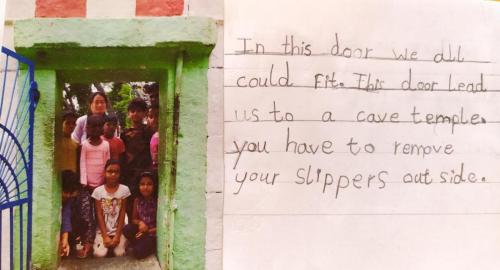 In this door we all
could Fit. This door Lead
us to a cave temple.
you have to remove
your slippers out side.